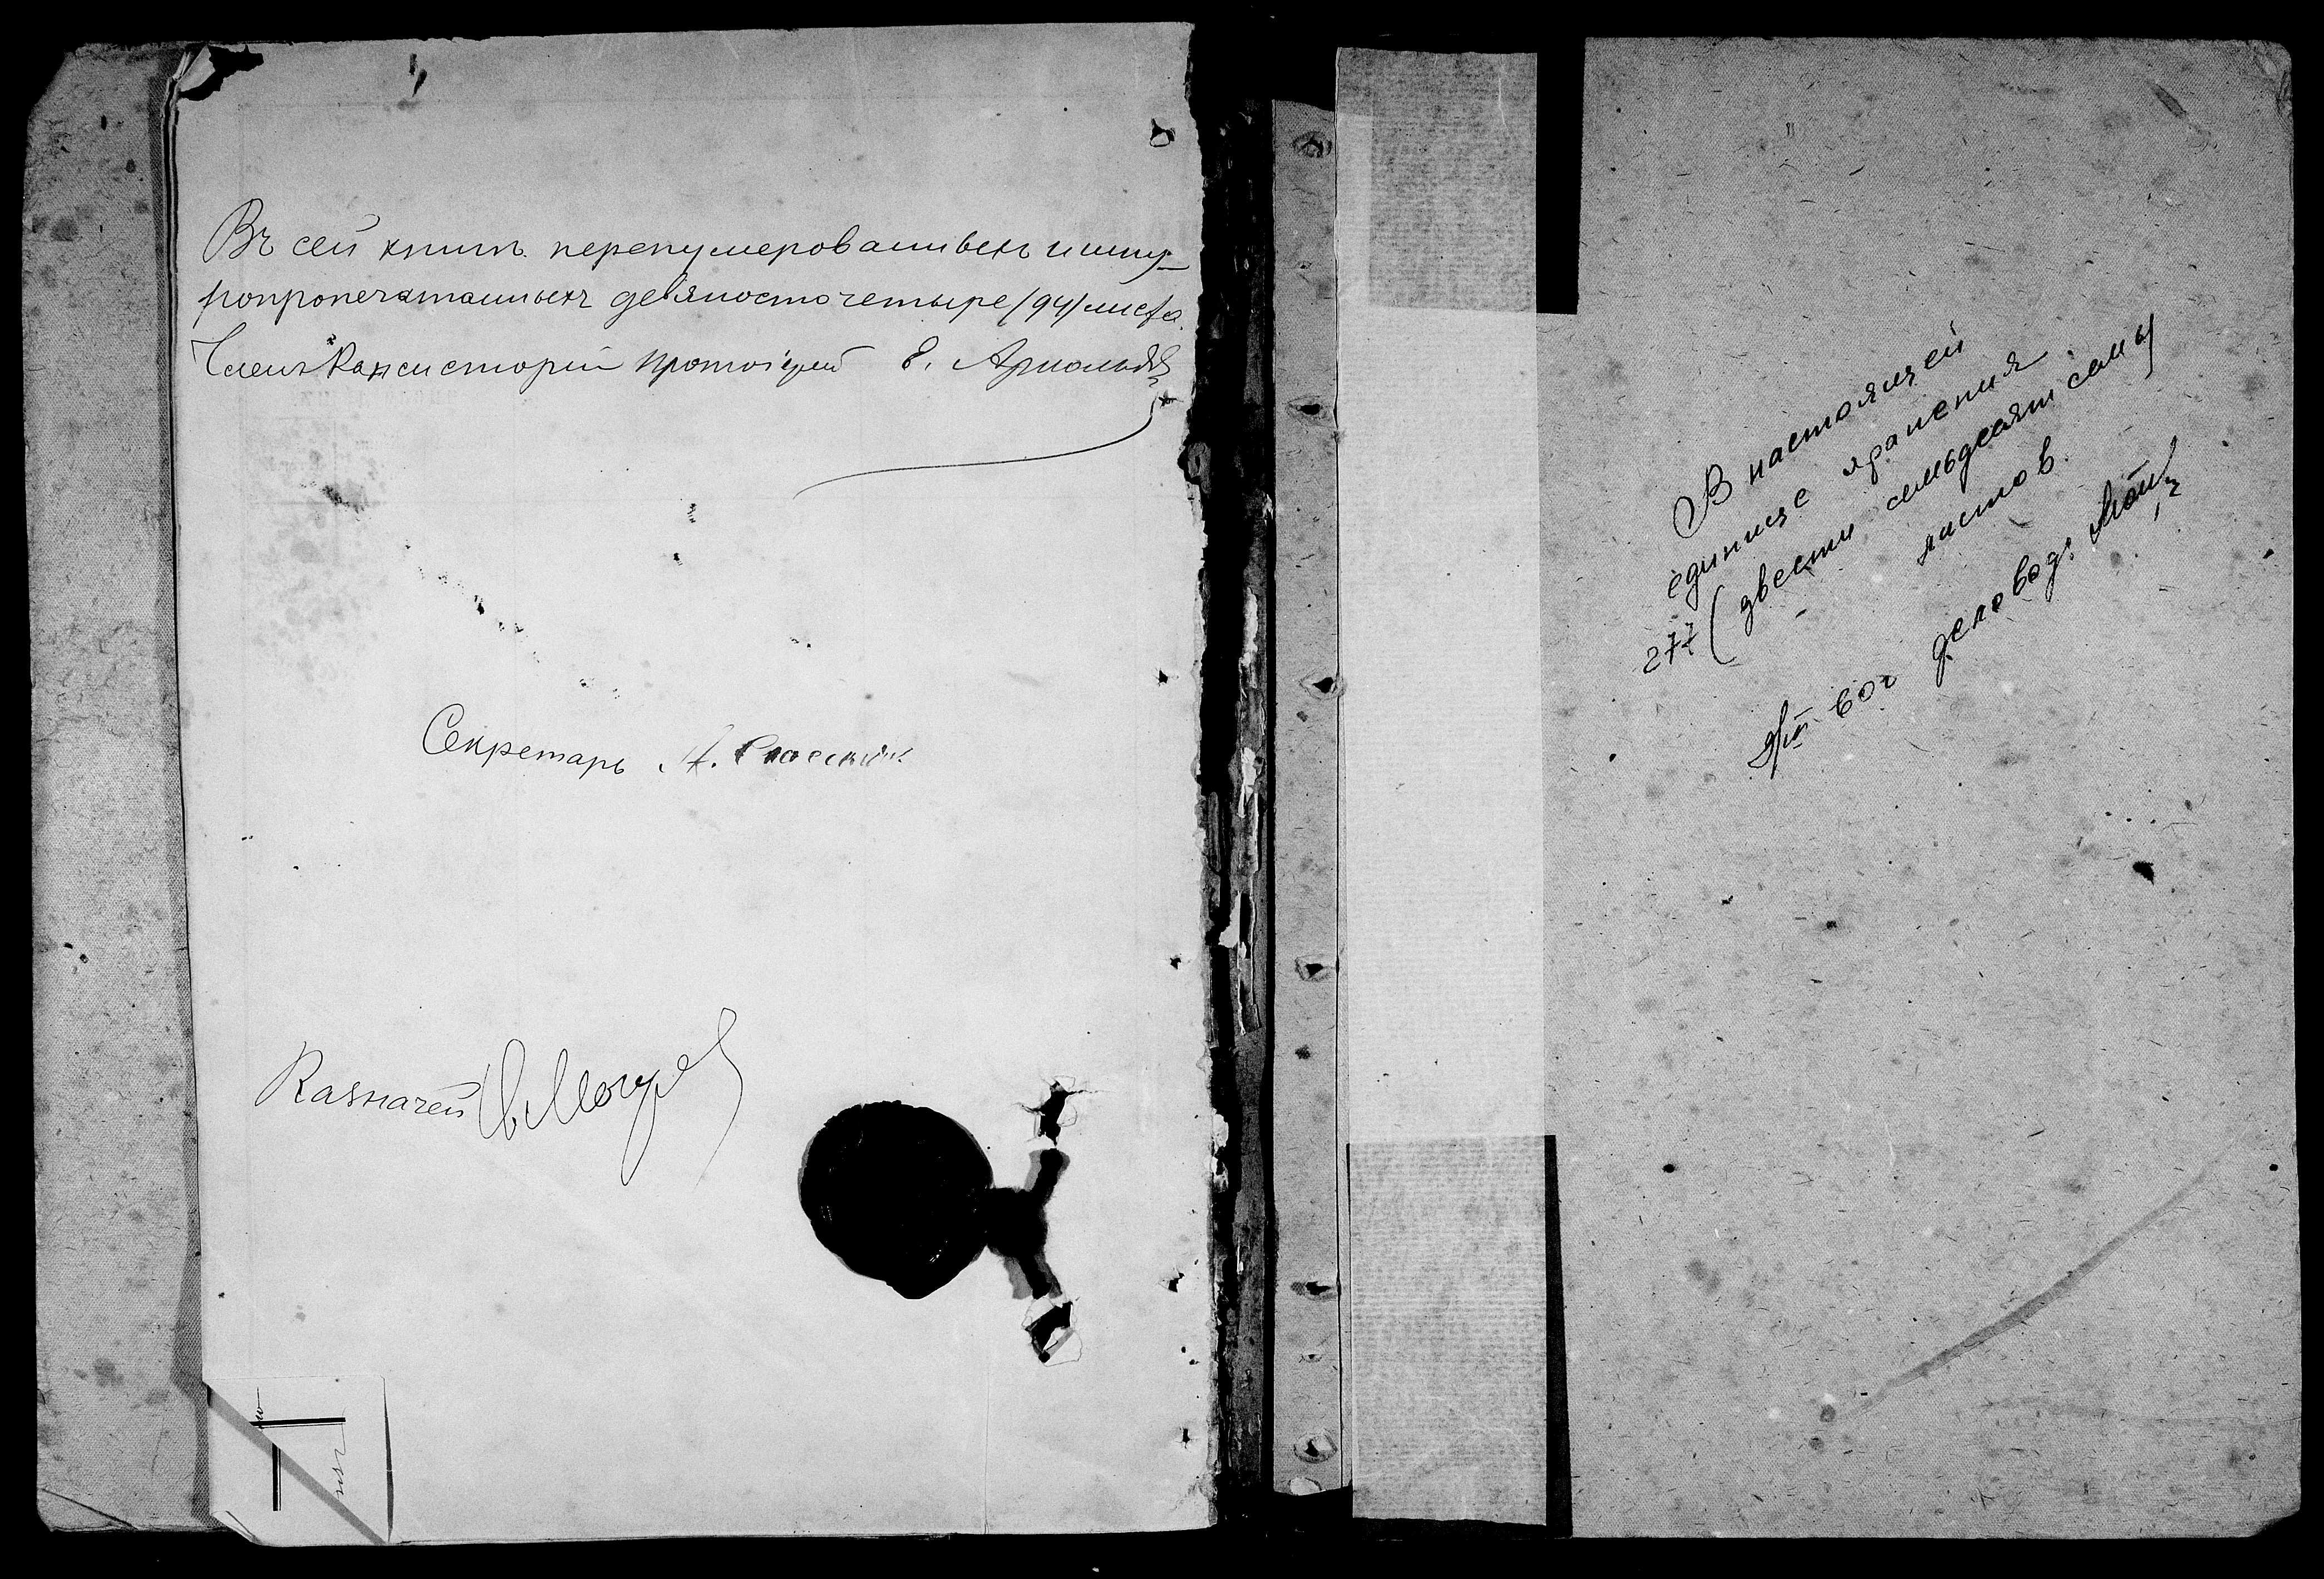 Въ сей книгѣ перенумерованныхъ и шну-
ропропечатанныхъ девяносто четыре /94/ листа.
Членъ Консисторіи Протоіерей
Секретарь А. Спасскій
Казначей
В настоящей
единице хранения
277 (двести семьдесят семь)
листов.
деловод.